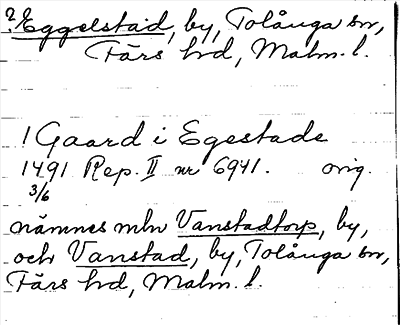 ? Eggelstad, by, Tolånga sn,
Färs hd, Malm. l.
1 Gaard i Egestade
1491 Rep. II nr 6941. orig.
3/6
nämnes mln Vanstadtorp, by,
och Vanstad, by, Tolånga sn,
Färs hd, Malm. l.